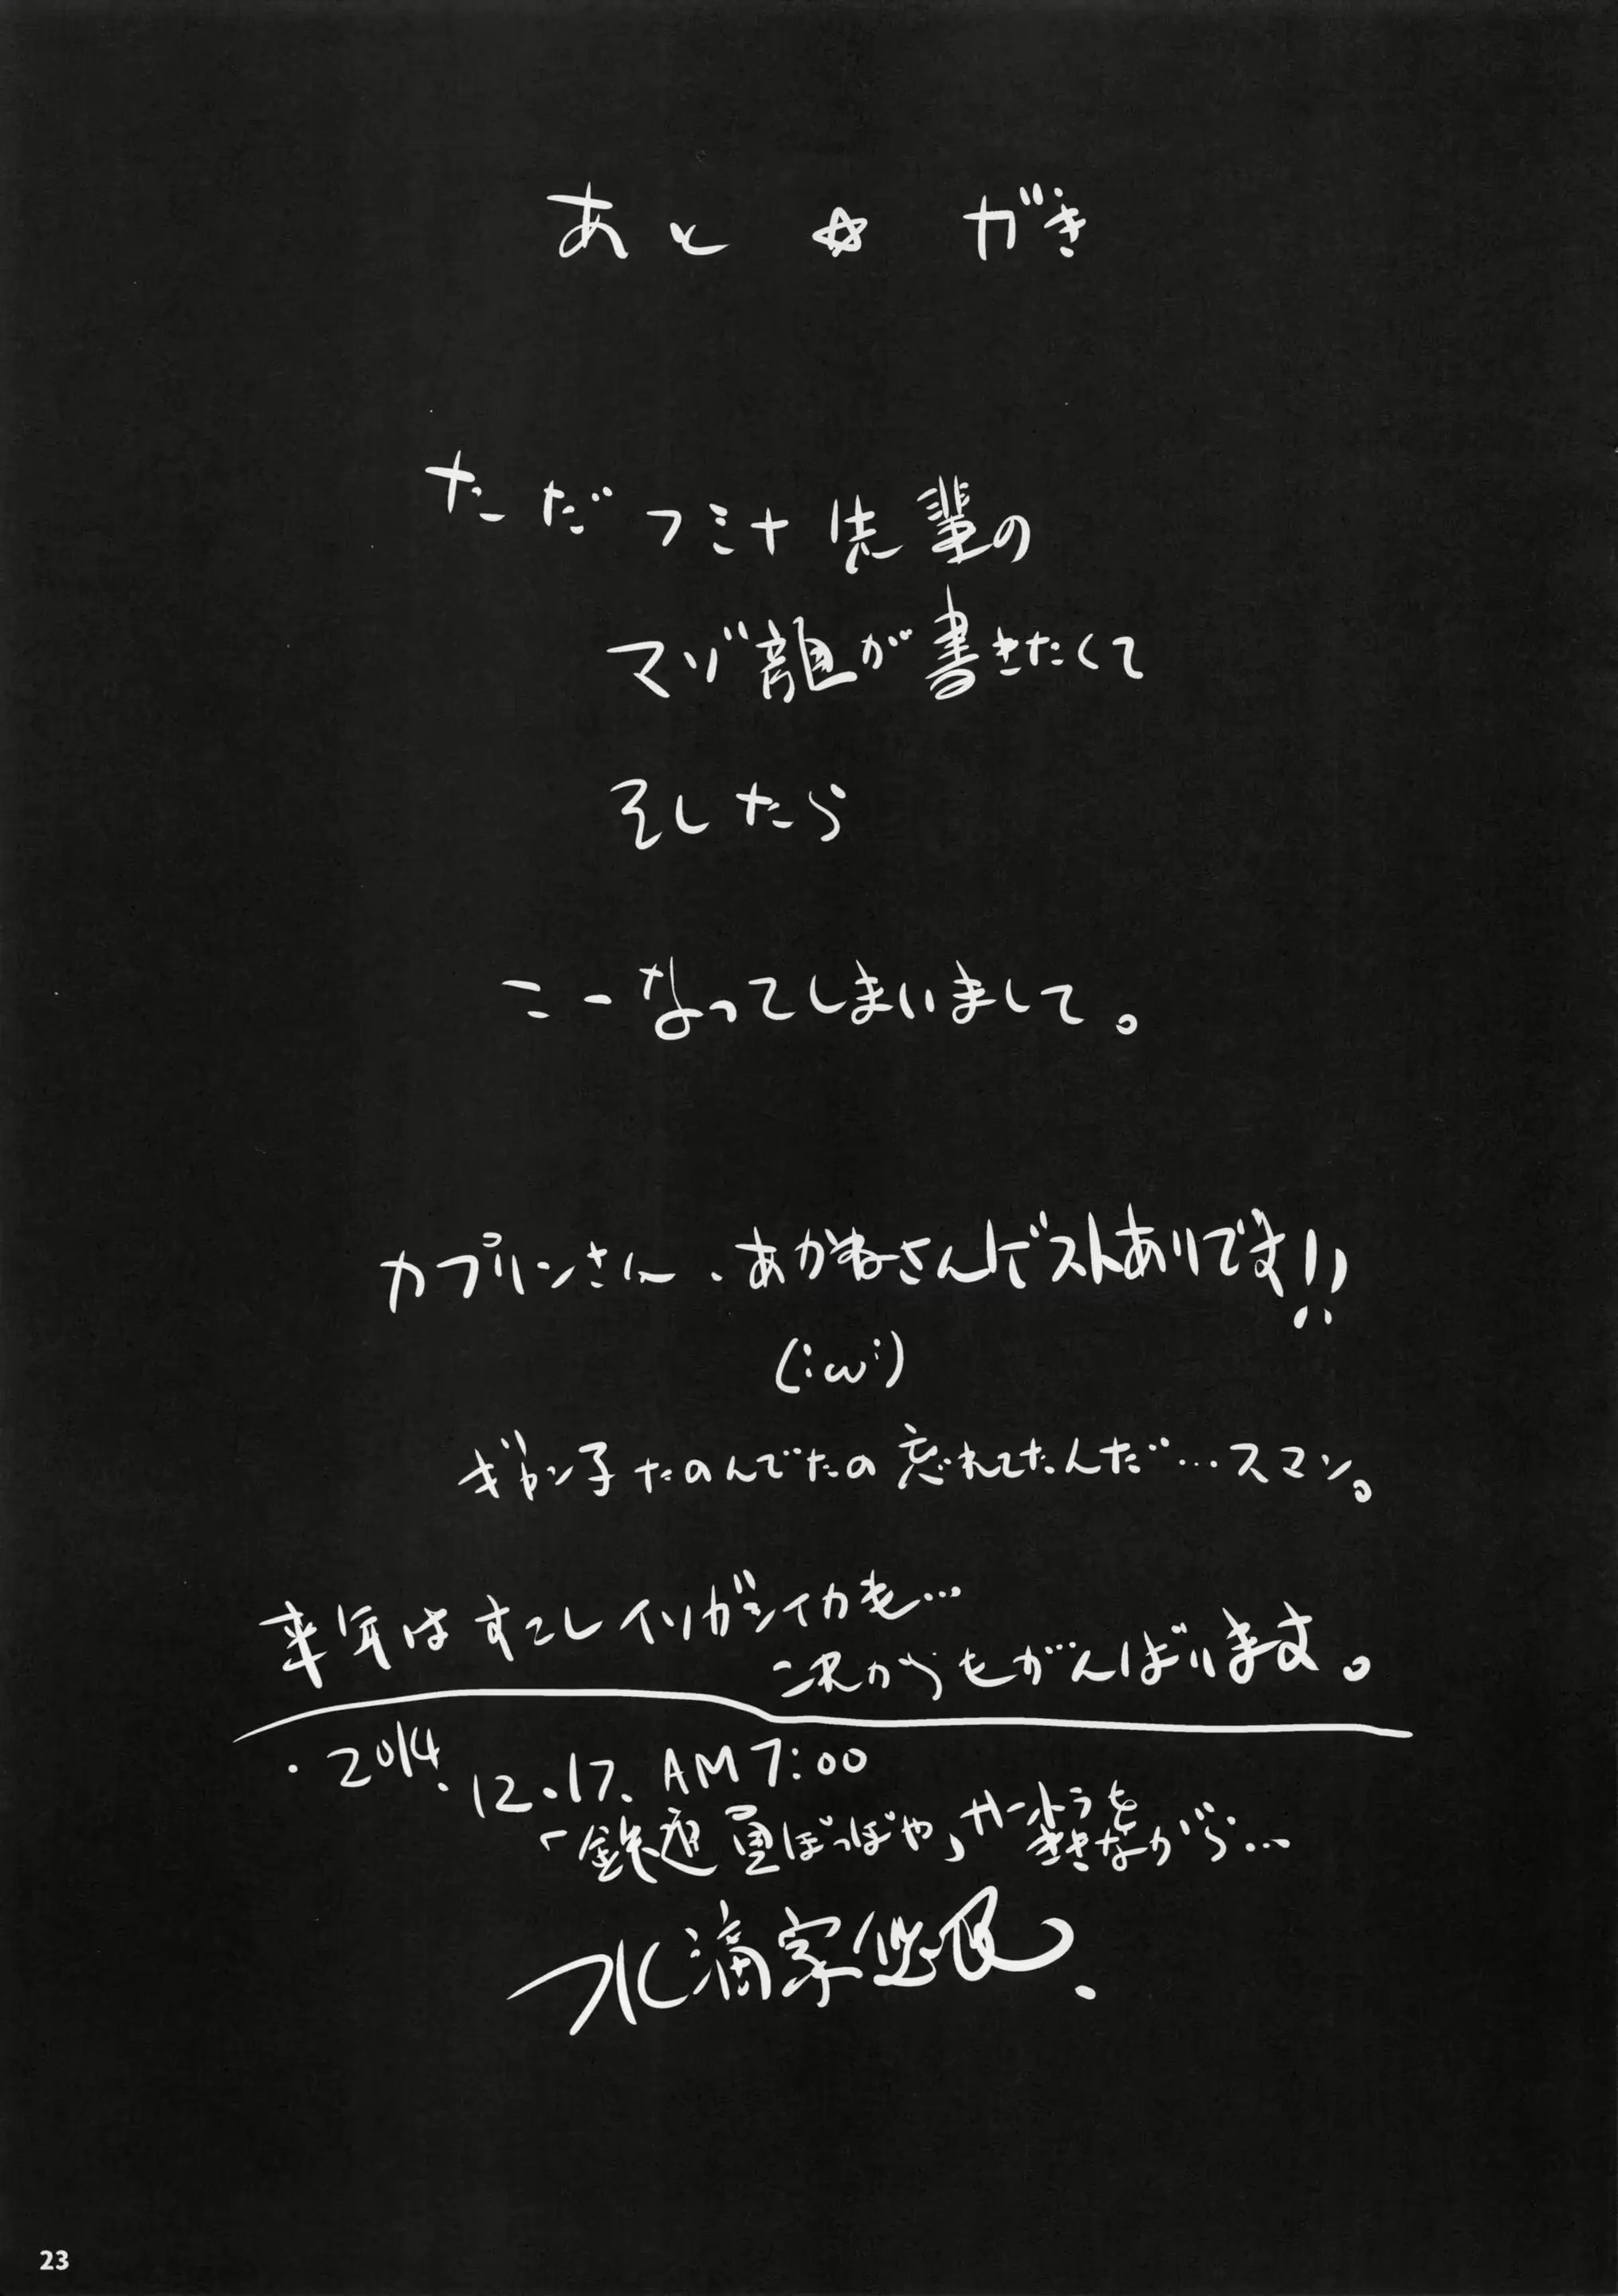 あと☆がき
ただフミナ先輩の
マゾ顔が書きたくて
そしたら
こーなってしまいまして。
カプリンさん、あかねさんゲストありです!!
(:ω:)
ギャン子たのんでたの忘れてたんだ…スマン。
来年はすこしイソガシイカも…
これからもがんばります。
・2014.12.17. AM7:00
「鉄道員ぽっぽや」サートラをききながら…
水滴家
23